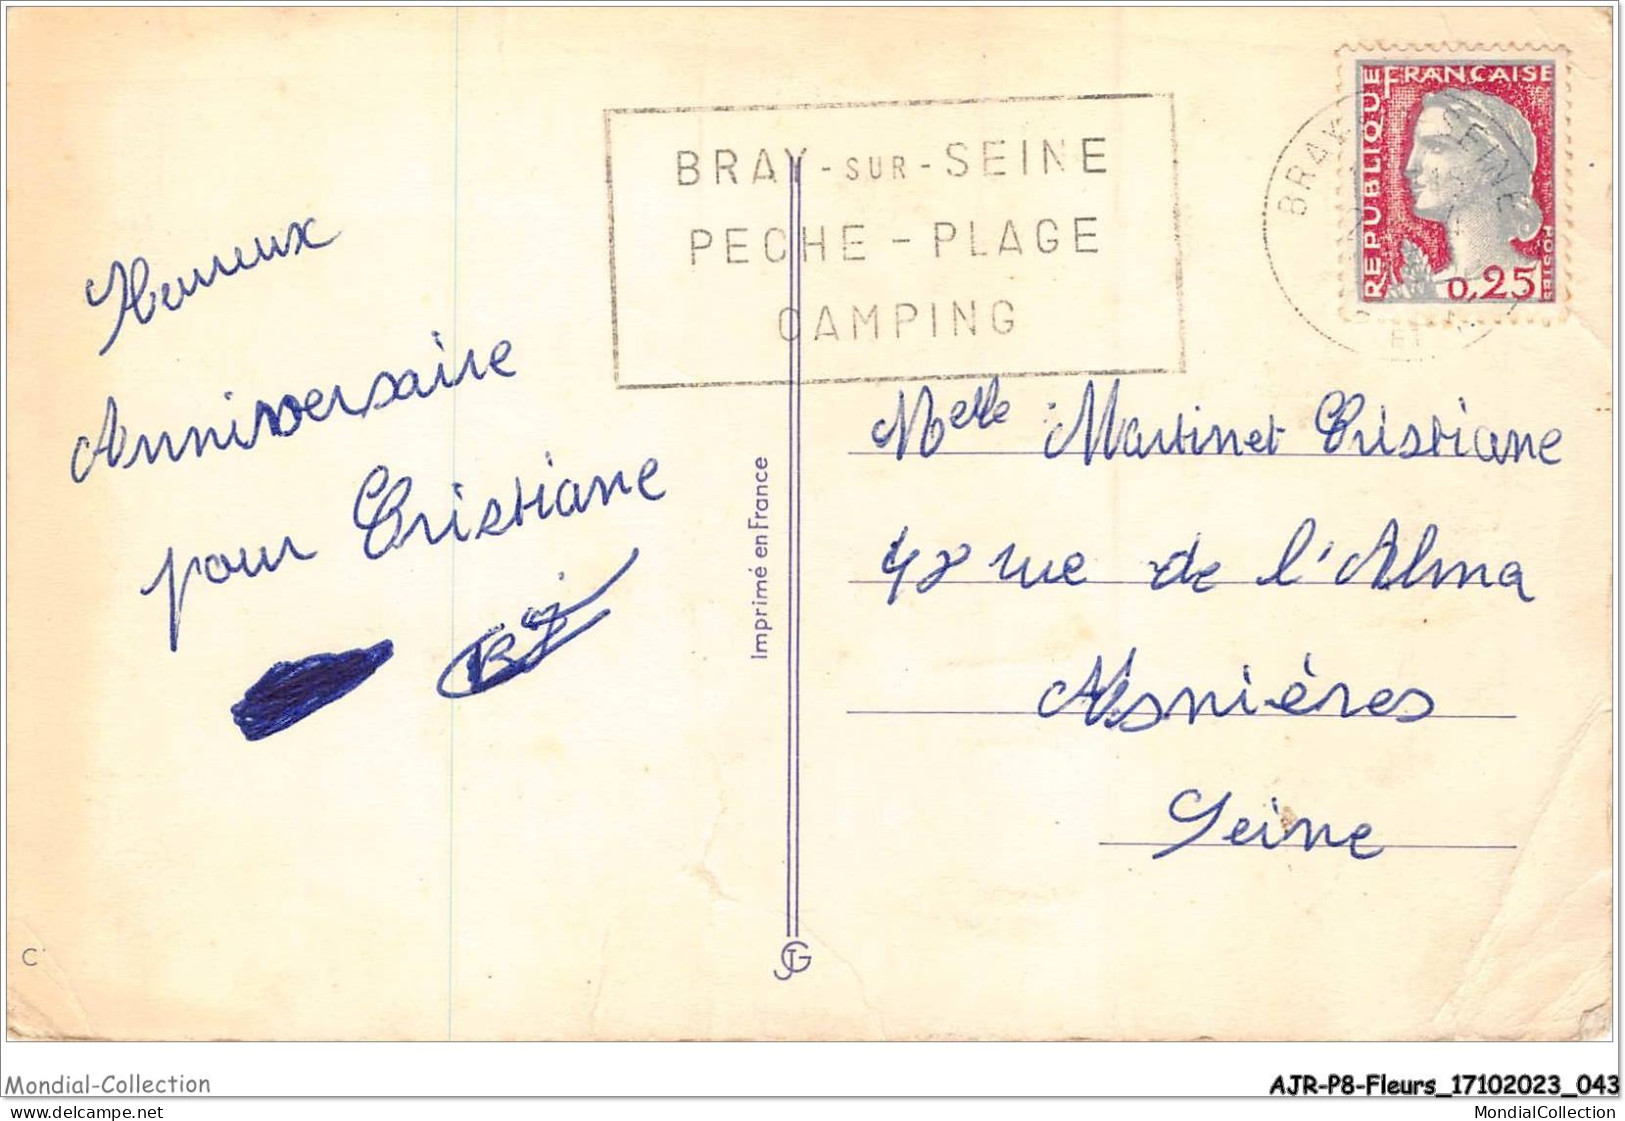 BRAY - SUR - SEINE
PECHE - PLAGE
CAMPING
RÉPUBLIQUE FRANÇAISE
0,25
POSTES
BRAY SEINE
ET
Heureux
Anniversaire
pour Cristiane
Imprimé en France
Melle Martinet Cristiane
48 rue de l'Alma
Asnières
Seine
C
JG
Mondial-Collection
AJR-P8-Fleurs_17102023_043
www.delcampe.net
MondialCollection